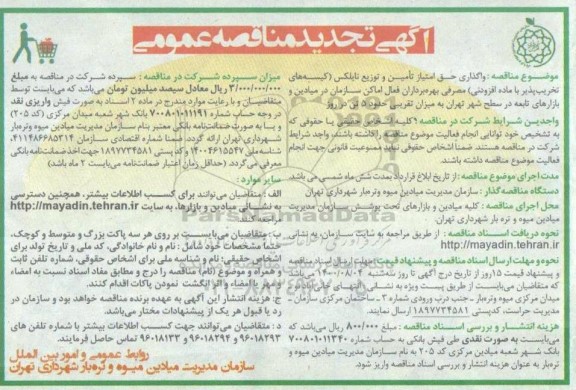 آگهی تجدید مناقصه عمومی
موضوع مناقصه : واگذاری حق امتیاز تأمین و توزیع نایلکس (کیسه‌های
تخریب‌پذیر با ماده افزودنی) مصرفی بهره‌برداران فعال اماکن سازمان در میادین و
بازارهای تابعه در سطح شهر تهران به میزان تقریبی حدود ۵ تن در روز
واجدین شرایط شرکت در مناقصه : کلیه اشخاص حقیقی یا حقوقی که
به تشخیص خود توانایی انجام فعالیت موضوع مناقصه را داشته باشند، واجد شرایط
شرکت در مناقصه هستند. ضمناً اشخاص حقوقی نباید ممنوعیت قانونی جهت انجام
فعالیت موضوع مناقصه داشته باشند.
مدت اجرای موضوع مناقصه : از تاریخ ابلاغ قرارداد بمدت شش ماه شمسی می باشد.
دستگاه مناقصه‌گذار : سازمان مدیریت میادین میوه و تره‌بار شهرداری تهران
محل اجرای مناقصه : کلیه میادین و بازارهای تحت پوشش سازمان مدیریت
میادین میوه و تره بار شهرداری تهران.
نحوه دریافت اسناد مناقصه : از طریق مراجعه به سایت سازمان، به نشانی
http://mayadin.tehran.ir
نحوه و مهلت ارسال اسناد مناقصه و پیشنهاد قیمت: جهت ارسال اسناد مناقصه
و پیشنهاد قیمت ۱۵ روز از تاریخ درج آگهی تا روز سه‌شنبه ۱۴۰۰/۰۸/۰۴ می‌باشد
که متقاضیان می‌بایست از طریق پست ویژه به نشانی
میدان مرکزی میوه و تره‌بار - جنب درب ورودی شماره ۳ - ساختمان مرکزی سازمان -
مدیریت حراست، کدپستی ۱۸۹۷۷۳۴۵۸۱ ارسال نمایند.
هزینه انتشار و بررسی اسناد مناقصه : مبلغ ۸۰۰/۰۰۰ ریال می‌باشد که
می‌بایست به صورت نقدی طی فیش بانکی به حساب شماره ۷۰۰۸۰۱۰۱۱۳۴۰
بانک شهر شعبه میادین مرکزی کد ۲۰۵ به نام سازمان مدیریت میادین میوه و
تره‌بار به عنوان هزینه انتشار و بررسی اسناد مناقصه واریز شود.
میزان سپرده شرکت در مناقصه : سپرده شرکت در مناقصه به مبلغ
۳/۰۰۰/۰۰۰/۰۰۰ ریال معادل سیصد میلیون تومان می‌باشد که می‌بایست توسط
متقاضیان و با رعایت موارد مندرج در ماده ۲ اسناد به صورت فیش واریزی نقد
در وجه حساب شماره ۷۰۰۸۰۱۰۱۱۱۹۱ بانک شهر شعبه میدان مرکزی (کد ۲۰۵)
و یا به صورت ضمانتنامه بانکی معتبر بنام سازمان مدیریت میادین میوه و تره‌بار
شهرداری تهران ارائه گردد. ضمناً شماره اقتصادی سازمان ۴۱۱۱۴۸۶۶۸۵۳۱۴
شناسه ملی ۱۴۰۰۴۶۱۵۵۴۷ و کد پستی ۱۸۹۷۷۳۴۵۸۱ جهت اخذ ضمانتنامه بانکی
معرفی می‌گردد. (حداقل زمان اعتبار ضمانتنامه می‌بایست ۲ ماه باشد)
سایر موارد :
الف : متقاضیان می‌توانند برای کسب اطلاعات بیشتر، همچنین دسترسی
به نشانی میادین و بازارها، به سایت http://mayadin.tehran.ir
مراجعه نمایند.
ب : متقاضیان می‌بایست بر روی هر سه پاکت بزرگ و متوسط و کوچک،
حتماً مشخصات خود شامل : نام و نام خانوادگی، کد ملی و تاریخ تولد برای
اشخاص حقیقی؛ نام و شناسه ملی برای اشخاص حقوقی، شماره تلفن ثابت
و همراه و موضوع (نام) مناقصه را درج و مطابق مفاد اسناد نسبت به امضاء
و مهر یا امضاء و اثر انگشت نمودن پاکات اقدام کنند.
ج: هزینه انتشار این آگهی به عهده برنده مناقصه خواهد بود و سازمان در
رد یا قبول هر یک از پیشنهادات مختار می‌باشد.
د : متقاضیان می‌توانند جهت کسب اطلاعات بیشتر با شماره تلفن های
۹۶۰۱۸۲۹۳ و ۹۶۰۱۸۲۹۴ و ۹۶۰۱۸۱۳۳ تماس حاصل فرمایند.
روابط عمومی و امور بین الملل
سازمان مدیریت میادین میوه و تره‌بار شهرداری تهران